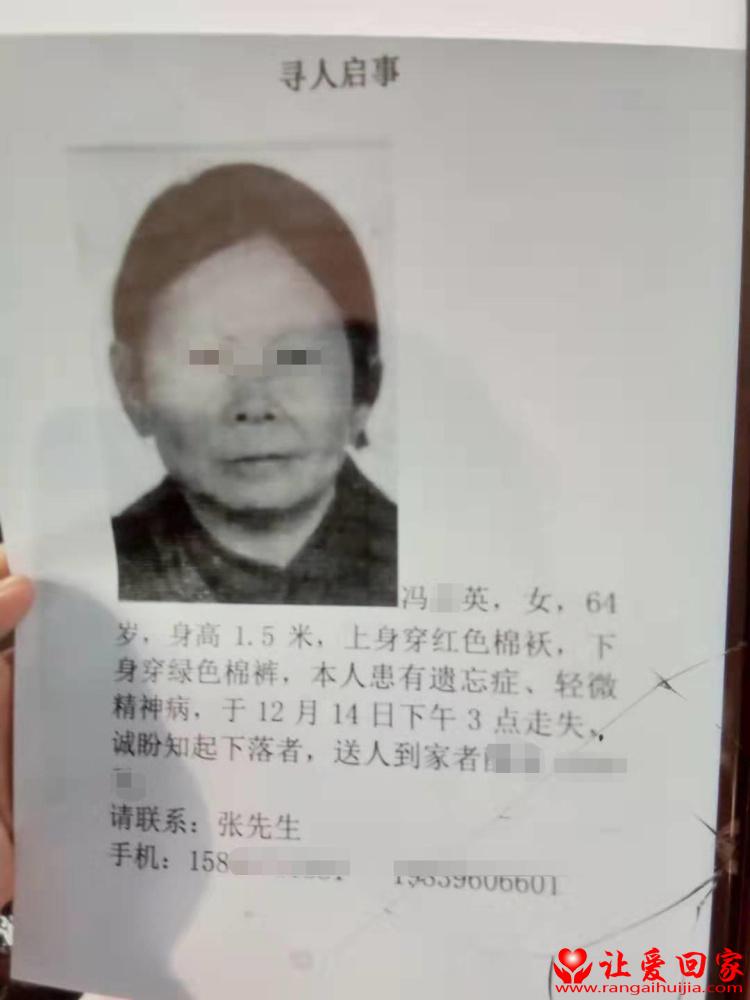 寻人启事
冯 英，女，64
岁，身高 1.5 米，上身穿红色棉袄，下
身穿绿色棉裤，本人患有遗忘症、轻微
精神病，于 12 月 14 日下午 3 点走失，
诚盼知起下落者，送人到家者
请联系：张先生
手机：158 19839606601
让爱回家
www.rangaihuijia.com